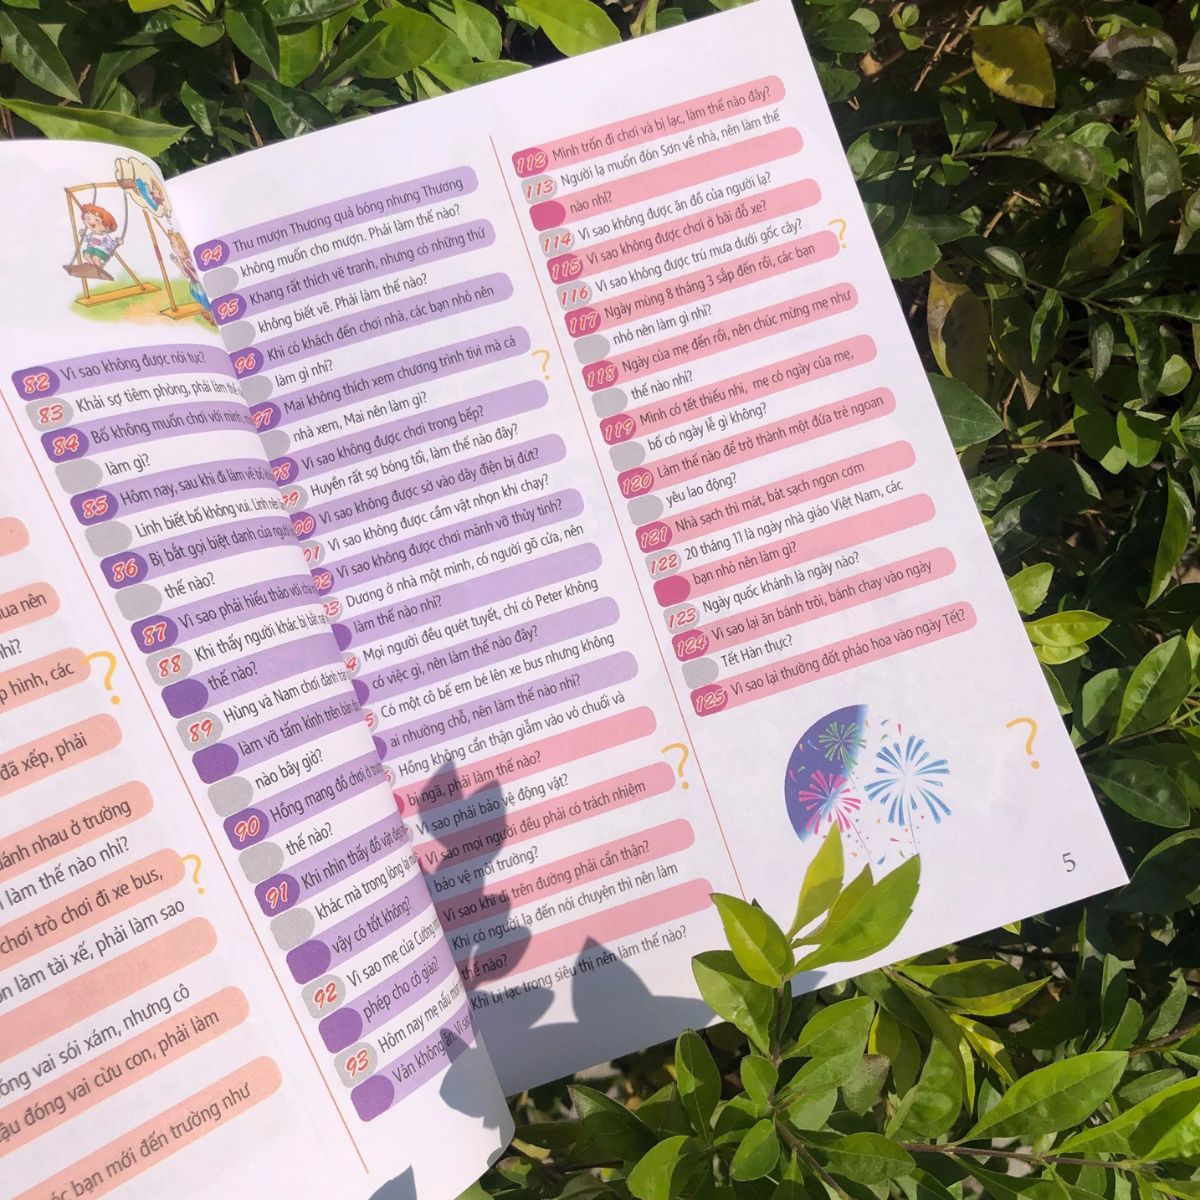 ua nên
hỉ?
p hình, các
đã xếp, phải
ánh nhau ở trường
làm thế nào nhỉ?
chơi trò chơi đi xe bus,
n làm tài xế, phải làm sao
óng vai sói xám, nhưng cô
ậu đóng vai cừu con, phải làm
c bạn mới đến trường như
82 Vì sao không được nói tục?
83 Khải sợ tiêm phòng, phải làm thế
84 Bố không muốn chơi với mình,
làm gì?
85 Hôm nay, sau khi đi làm về
Linh biết bố không vui. Linh nên
86 Bị bắt gọi biệt danh của người
thế nào?
87 Vì sao phải hiếu thảo với
88 Khi thấy người khác bị bắt
thế nào?
89 Hùng và Nam chơi đánh
làm vỡ tấm kính trên bàn
nào bây giờ?
90 Hồng mang đồ chơi ở
thế nào?
91 Khi nhìn thấy đồ vật đẹp
khác mà trong lòng lại
vậy có tốt không?
92 Vì sao mẹ của Cường
phép cho cô giáo?
93 Hôm nay mẹ nấu món
Vân không ăn. Vì sao
94 Thu mượn Thương quả bóng nhưng Thương
không muốn cho mượn. Phải làm thế nào?
95 Khang rất thích vẽ tranh, nhưng có những thứ
không biết vẽ. Phải làm thế nào?
96 Khi có khách đến chơi nhà, các bạn nhỏ nên
làm gì nhỉ?
97 Mai không thích xem chương trình tivi mà cả
nhà xem, Mai nên làm gì?
98 Vì sao không được chơi trong bếp?
99 Huyền rất sợ bóng tối, làm thế nào đây?
00 Vì sao không được sờ vào dây điện bị đứt?
01 Vì sao không được cầm vật nhọn khi chạy?
02 Vì sao không được chơi mảnh vỡ thủy tinh?
03 Dương ở nhà một mình, có người gõ cửa, nên
làm thế nào nhỉ?
4 Mọi người đều quét tuyết, chỉ có Peter không
có việc gì, nên làm thế nào đây?
5 Có một cô bế em bé lên xe bus nhưng không
ai nhường chỗ, nên làm thế nào nhỉ?
Hồng không cẩn thận giẫm vào vỏ chuối và
bị ngã, phải làm thế nào?
Vì sao phải bảo vệ động vật?
Vì sao mọi người đều phải có trách nhiệm
bảo vệ môi trường?
Vì sao khi đi trên đường phải cẩn thận?
Khi có người lạ đến nói chuyện thì nên làm
thế nào?
Khi bị lạc trong siêu thị nên làm thế nào?
112 Minh trốn đi chơi và bị lạc, làm thế nào đây?
113 Người lạ muốn đón Sơn về nhà, nên làm thế
nào nhỉ?
114 Vì sao không được ăn đồ của người lạ?
115 Vì sao không được chơi ở bãi đỗ xe?
116 Vì sao không được trú mưa dưới gốc cây?
117 Ngày mùng 8 tháng 3 sắp đến rồi, các bạn
nhỏ nên làm gì nhỉ?
118 Ngày của mẹ đến rồi, nên chúc mừng mẹ như
thế nào nhỉ?
119 Mình có tết thiếu nhi, mẹ có ngày của mẹ,
bố có ngày lễ gì không?
120 Làm thế nào để trở thành một đứa trẻ ngoan
yêu lao động?
121 Nhà sạch thì mát, bát sạch ngon cơm
122 20 tháng 11 là ngày nhà giáo Việt Nam, các
bạn nhỏ nên làm gì?
123 Ngày quốc khánh là ngày nào?
124 Vì sao lại ăn bánh trôi, bánh chay vào ngày
Tết Hàn thực?
125 Vì sao lại thường đốt pháo hoa vào ngày Tết?
5